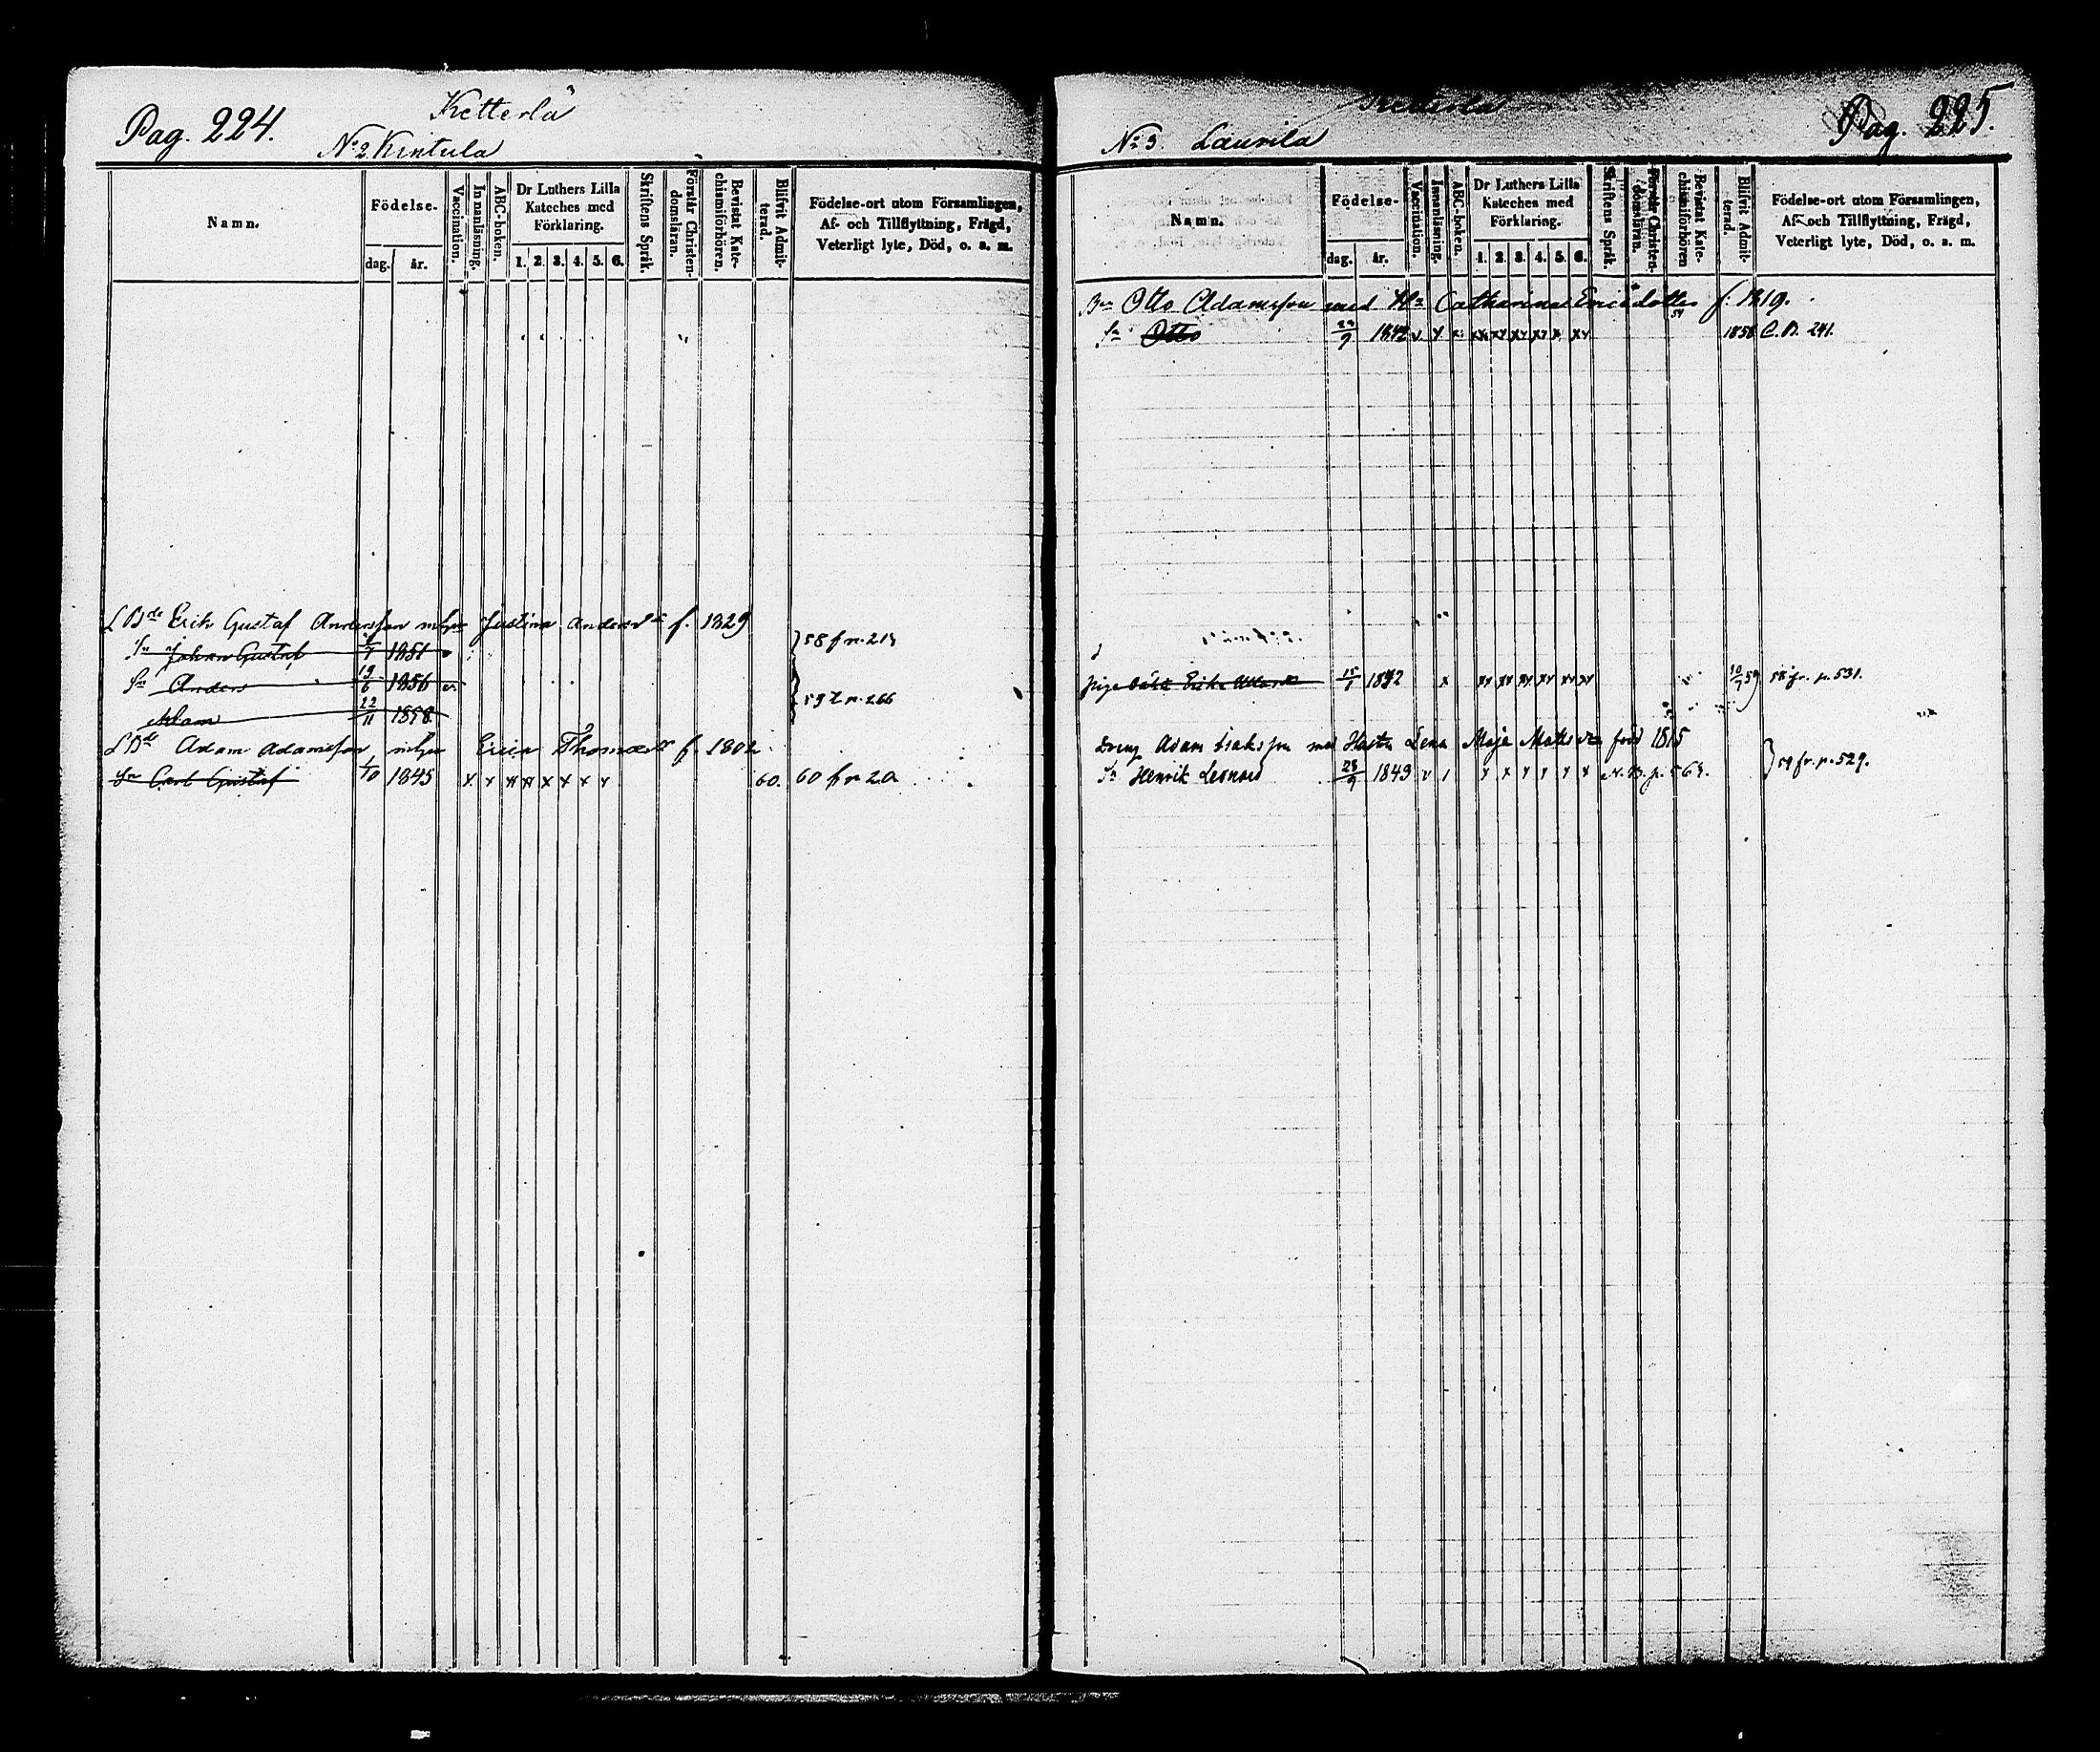 Pag. 224.
Ketterlä
No 2 Kintula
Namn.
Födelse-
dag.
år.
Vaccination.
Innanläsning.
ABC-boken.
Dr Luthers Lilla Kateches med Förklaring.
1. 2. 3. 4. 5. 6.
Skriftens Språk.
Förstår Christendomsläran.
Bevistat Katechismiförhören.
Blifvit Admitterad.
Födelse-ort utom Församlingen,
Af- och Tillflyttning, Frägd,
Veterligt lyte, Död, o. s. m.
Erik Gustaf Andersson Justina Andersdr f. 1829
Sn Johan Gustaf 1851 58 fr. 213
Sn Anders 19/6 1856 v
Adam 22/11 1858 59 t. p. 266
Adam Adamsson m hu Erica Thomasdr f. 1802
Sn Carl Gustaf 1/10 1845 x x x x x x x x 60. 60 fr 20
Pag. 225.
No 3. Laurila
Namn.
Födelse-
dag.
år.
Vaccination.
Innanläsning.
ABC-boken.
Dr Luthers Lilla Kateches med Förklaring.
1. 2. 3. 4. 5. 6.
Skriftens Språk.
Förstår Christendomsläran.
Bevistat Katechismiförhören
Blifvit Admitterad.
Födelse-ort utom Församlingen,
Af- och Tillflyttning, Frägd,
Veterligt lyte, Död, o. s. m.
Otto Adamsson med Catharina Ericsdotter f. 1819.
Sn Otto 1842 v 1858 C. B. 241.
15/1 1842 x xx xx xx xx xx xx 10/7 59 58 fr. p. 531.
Dreng Adam Isaksson med Hustru Lena Maja Matsdr född 1815
Sn Henrik Leonard 28/9 1849 v 1 x x x x x x N.B. p. 563. 59 fr. p. 529.